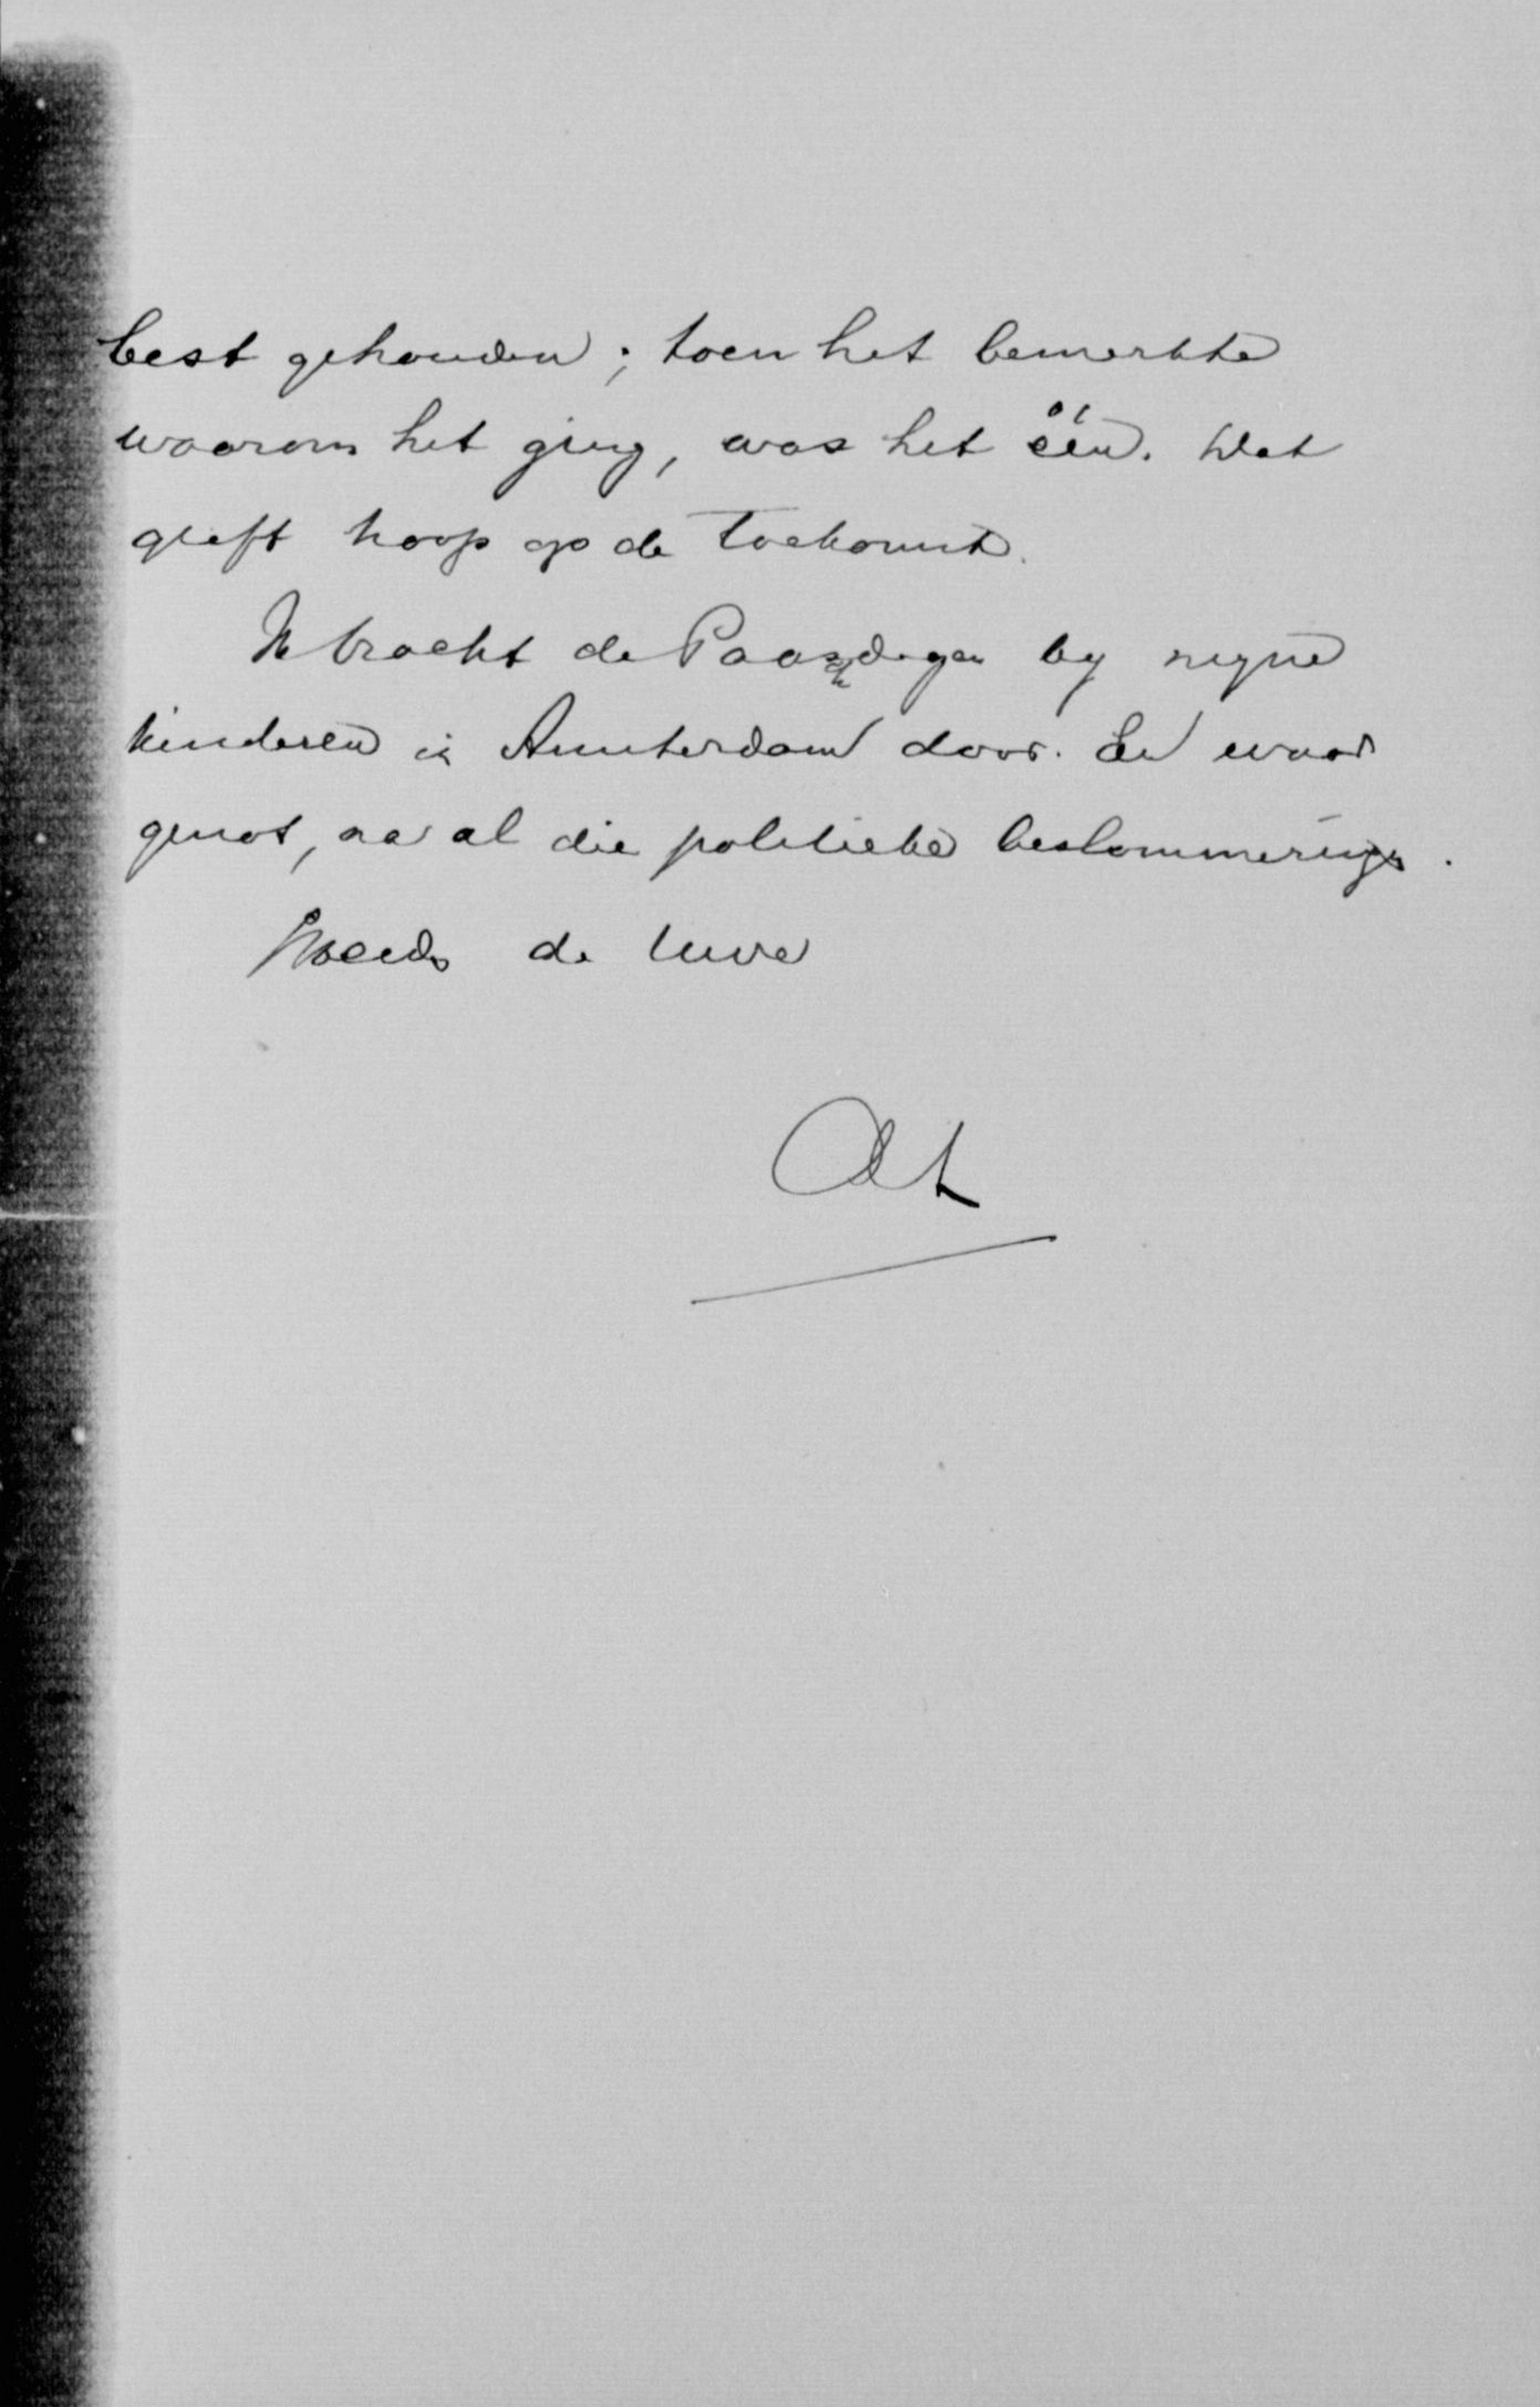 best gehouden; toen het bemerkte
waarom het ging, was het één. Dat
geeft hoop op de toekomst.
Ik bracht de Paaschdagen by myne
kinderen in Amsterdam door. Een waar
genot, na al die politieke beslommeringen.
Steeds de Uwe